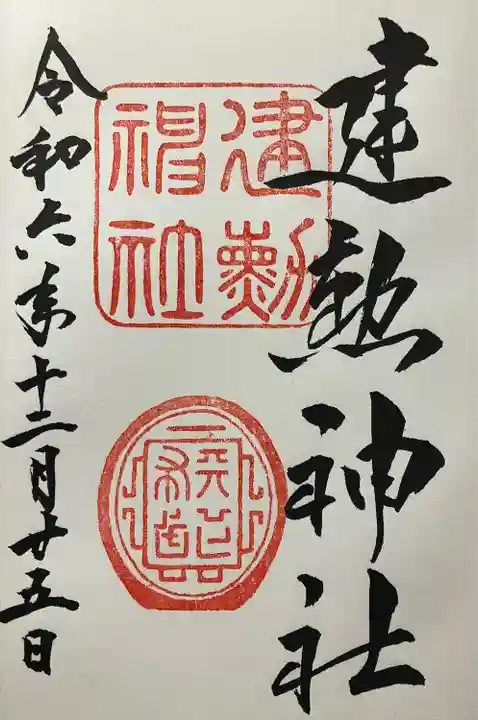 建勲神社
建勲
神社
天下布武
令和六年十二月廿五日